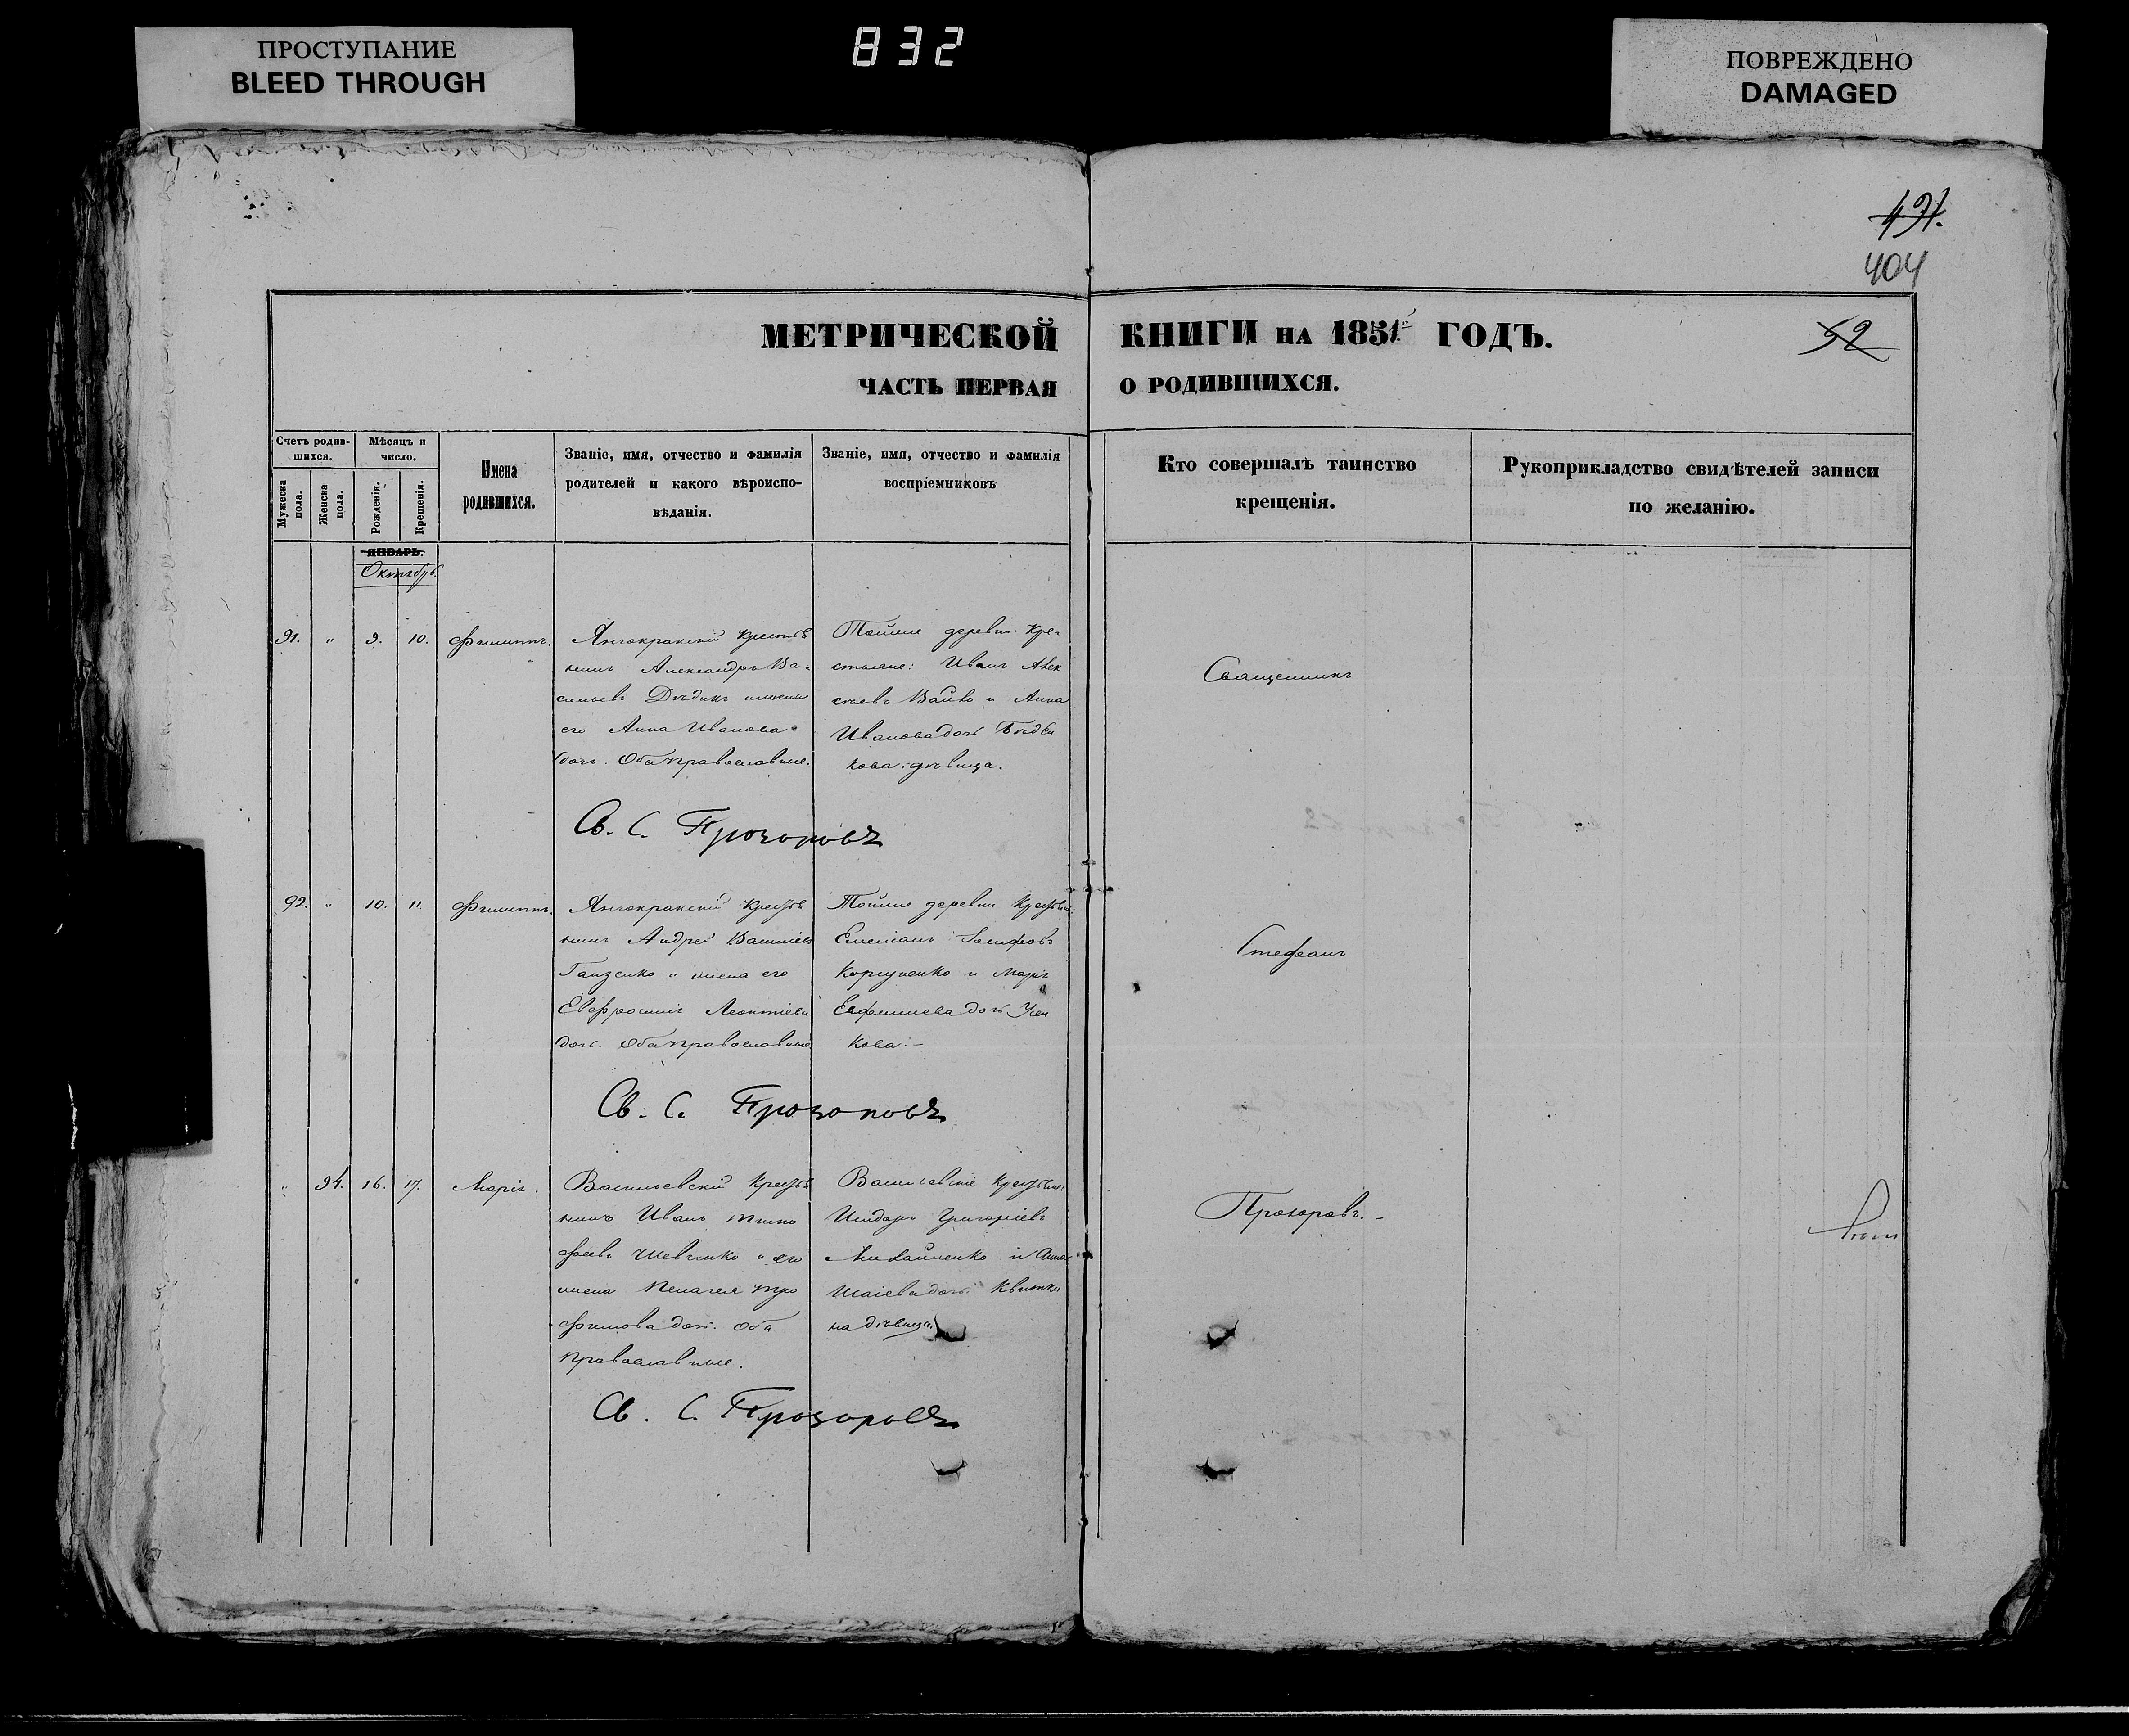 ПРОСТУПАНИЕ
BLEED THROUGH
832
ПОВРЕЖДЕНО
DAMAGED
404
МЕТРИЧЕСКОЙ КНИГИ НА 1851 ГОДЪ.
52
ЧАСТЬ ПЕРВАЯ О РОДИВШИХСЯ.
Счетъ родив-
шихся.
Мужеска пола.
Женска пола.
Мѣсяцъ и
число.
Рожденія.
Крещенія.
Имена
родившихся.
Званіе, имя, отчество и фамилія
родителей и какого вѣроиспо-
вѣданія.
Званіе, имя, отчество и фамилія
воспріемниковъ
Кто совершалъ таинство
крещенія.
Рукоприкладство свидѣтелей записи
по желанію.
ЯНВАРЬ.
Октябрь.
91. " 9. 10. Филиппъ.
крестья
нинъ Александръ Ва-
сильевъ и жена
его Анна Иванова
дочь. Оба православные.
Тойже деревни кре-
стьяне: Иванъ Алек
сѣевъ и Анна
Иванова дочь
кова дѣвица.
Св. С. Прозоровъ
92. " 10. 11. Филиппъ.
крестья
нинъ Андрей
и жена его
Евфросинія Леонтіева
дочь. Оба православные
Тойже деревни крестьяне:
Емеліанъ
и Марія
Евфиміева дочь
кова:-
Св. С. Прозоровъ
" 94. 16. 17. Марія.
Васильевскій крестья
нинъ Иванъ Тимо
феевъ Шевченко и его
жена Пелагея Тро
фимова дочь. Оба
православные.
Васильевскіе крестьяне:
Исидоръ Григоріевъ
Михайленко и Анна
Исаіева дочь
на дѣвица.
Св. С. Прозоровъ
Священникъ
Стефанъ
Прозоровъ.-